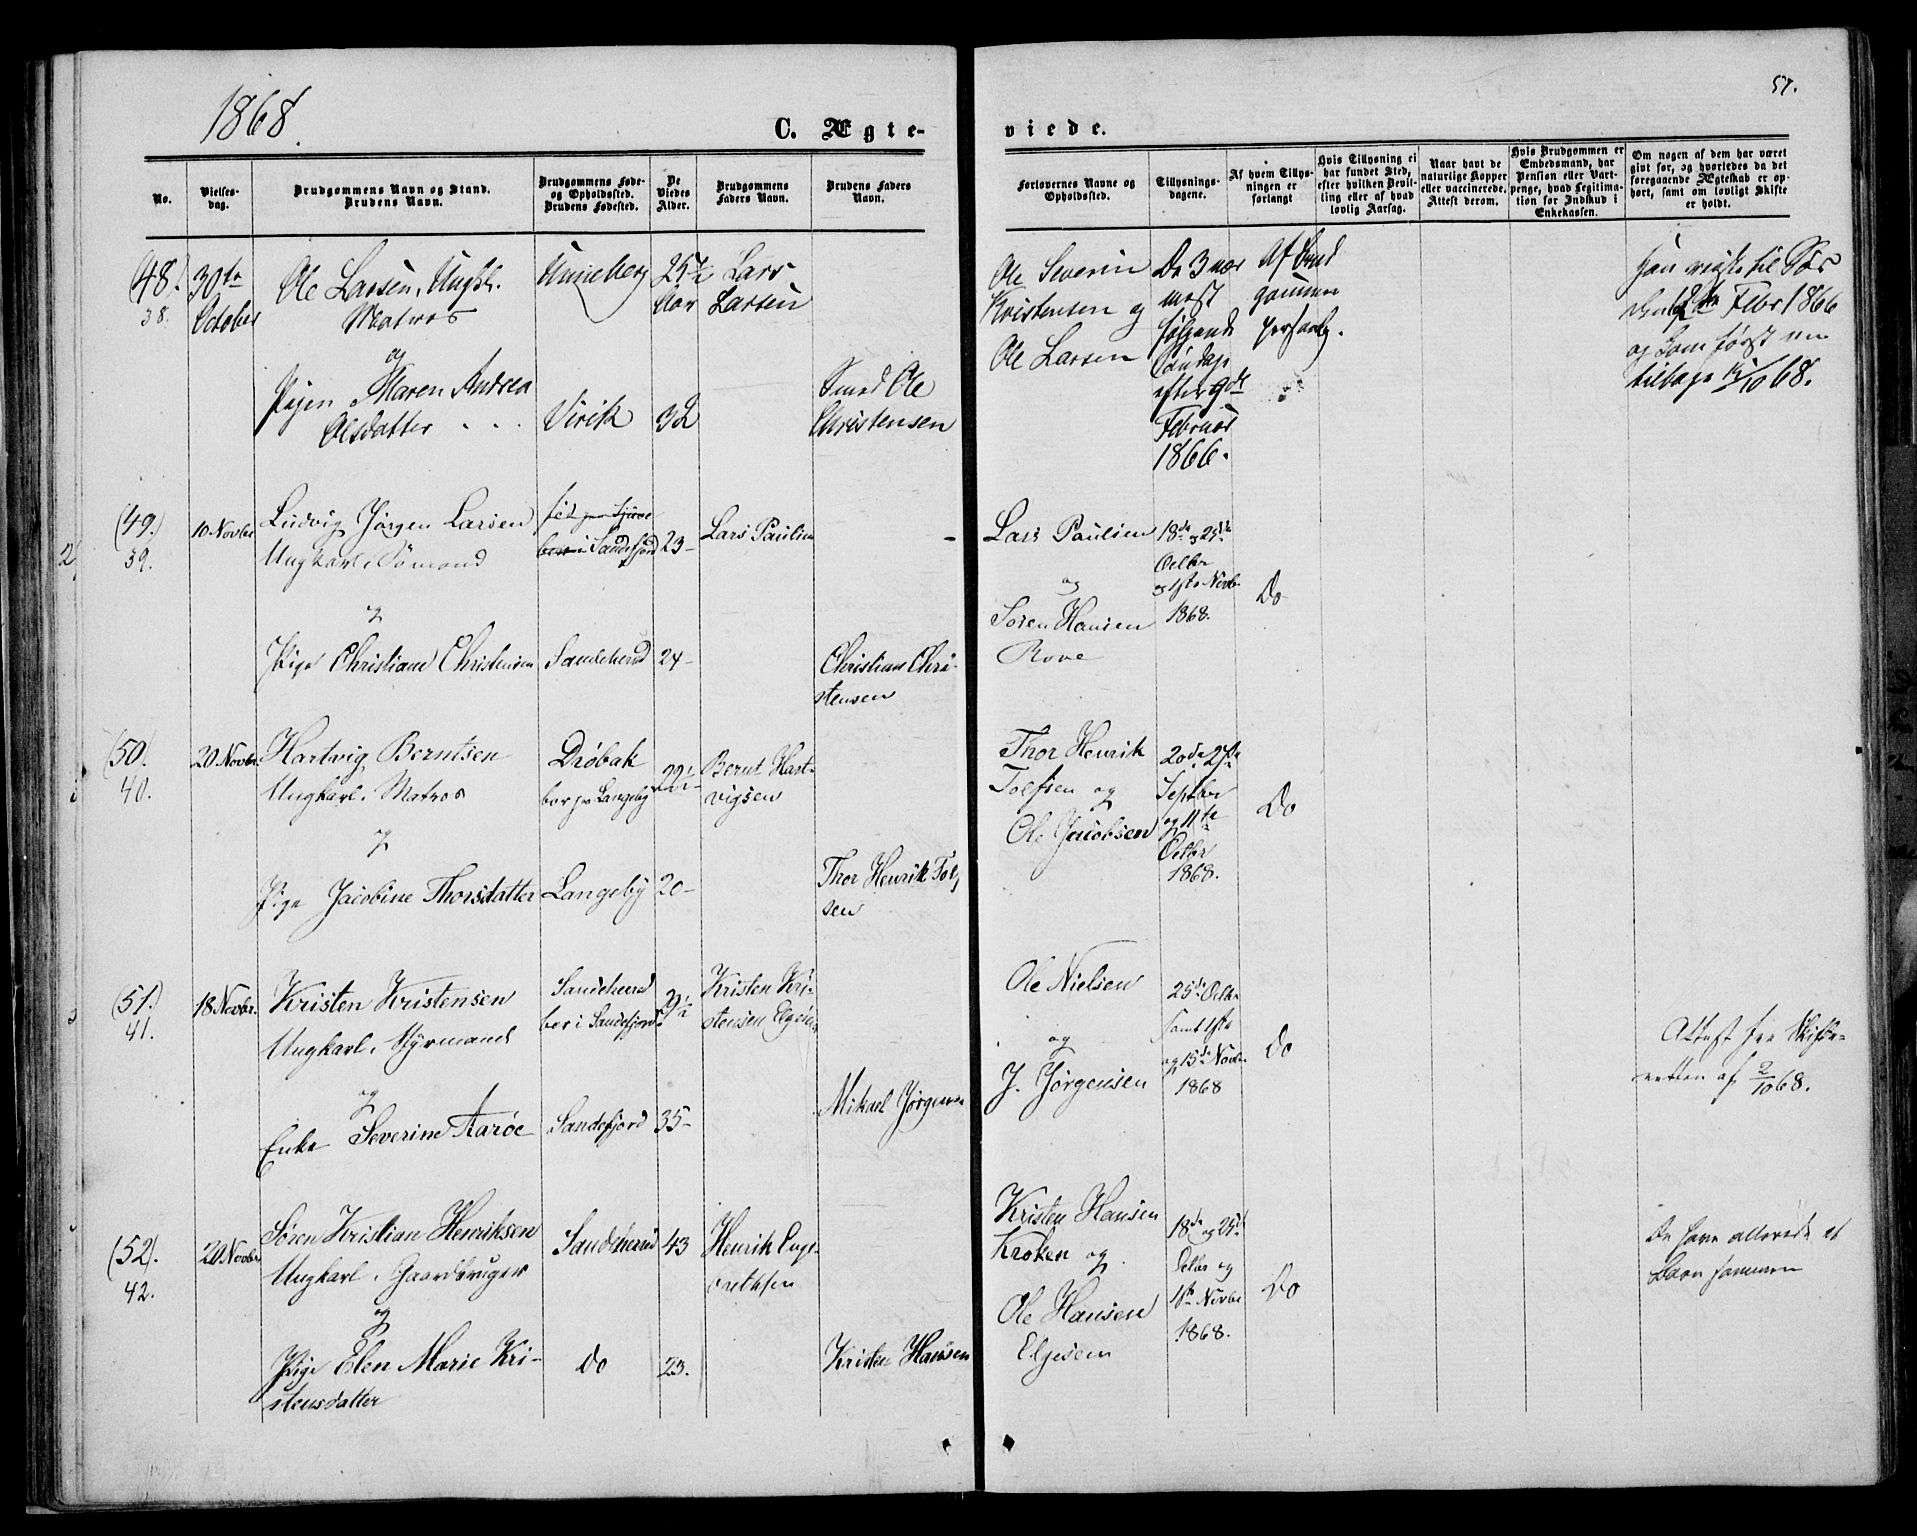 1868.
57.
C. Ægte-
viede.
No.
Vielses-
dag.
Brudgommens Navn og Stand.
Brudens Navn.
Brudgommens Føde-
og Opholdssted.
Brudens Fødested.
De
Viedes
Alder.
Brudgommens
Faders Navn.
Brudens Faders
Navn.
Forlovernes Navne og
Opholdssted.
Tillysnings-
dagene.
Af hvem Tillys-
ningen er
forlangt
Hvis Tillysning ei
har fundet Sted,
efter hvilken Bevil-
ling eller af hvad
lovlig Aarsag.
Naar havt de
naturlige Kopper
eller vaccinerede.
Attest derom.
Hvis Brudgommen er
Embedsmand, har
Pension eller Vart-
penge, hvad Legitima-
tion for Indskud i
Enkekassen.
Om nogen af dem har været
givt før, og hvorledes da det
foregaaende Ægteskab er op-
hørt, samt om lovligt Skifte
er holdt.
(48.)
38.
30te
October
Ole Larsen, Ungk.
Matros
og
Pigen Maren Andrea
Olsdatter
Unneberg
Virik
25½
Aar
32
Lars
Larsen
Smed Ole
Christensen
Ole Severin
Kristensen og
Ole Larsen
De 3 nær
mest
følgende
Søndage
efter 9de
Februar
1866.
Af Brud
gommen
personlig.
Han reiste til Søs
den 12te Febr 1866
og kom først nu
tilbage /10 68.
(49.)
39.
10 Novbr
Ludvig Jørgen Larsen
Ungkarl, Sømand
og
Pige Christiane Christensen
fød
i Sandefjord
Sandeherred
23-
24-
Lars Paulsen
-
Christian Chri-
stensen
Lars Paulsen
og
Søren Hansen
Rove
18de og 25de
Octbr
og 1ste Novbr
1868.
Do
(50.)
40.
20 Novbr.
Hartvig Berntsen
Ungkarl, Matros
og
Pige Jacobine Thorsdatter
Drøbak
bor paa Langeby
Langeby
22½
20-
Bernt Hart-
vigsen
Thor Henrik Tolf-
sen
Thor Henrik
Tolfsen og
Ole Jacobsen
20de 27de
Septbr
og 11te
Octbr
1868.
Do
(51.)
41.
18 Novbr.
Kristen Kristensen
Ungkarl, Styrmand
og
Enke Severine Aarøe
Sandeherred
bor i Sandefjord
Sandefjord
29½
35-
Kristen Kri-
stensen
Mikael Jørgensen
Ole Nielsen
og
J. Jørgensen
25de Octbr
samt 1ste
og 15de Novbr
1868
Do
Attest fra Skifte-
retten af 2/10 68.
(52).
42.
20 Novbr
Søren Kristian Henriksen
Ungkarl, Gaardbruger
og
Pige Elen Marie Kri-
stensdatter
Sandeherred
Do
43
23.
Henrik Enge-
bretsen
Kristen Hansen
Kristen Hansen
Krøken og
Ole Hansen
Elgesem
18de og 25de
Octbr og
1ste Novbr
1868.
Do
De have allerede et
Barn sammen